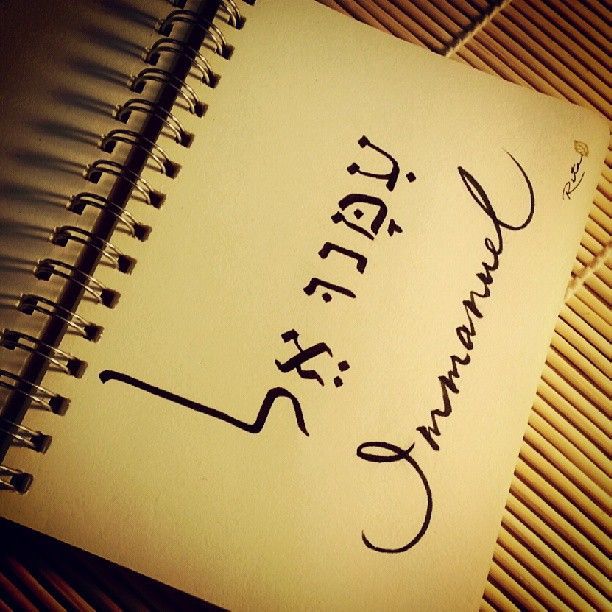 עִמָּנוּ אֵל
Immanuel
Rita